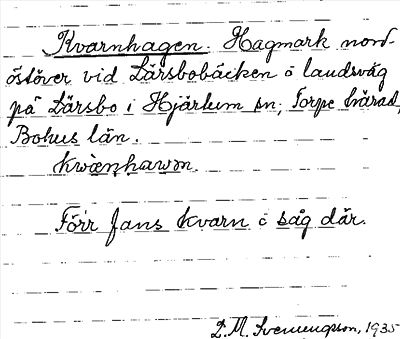 Kvarnhagen. Hagmark nord-
östöver vid Lärsbobäcken o landsväg
på Lärsbo i Hjärtum sn, Torpe härad,
Bohus län.
Kwænhawɔn.
Förr fans kvarn o såg där.
D.M. Svenungsson, 1935